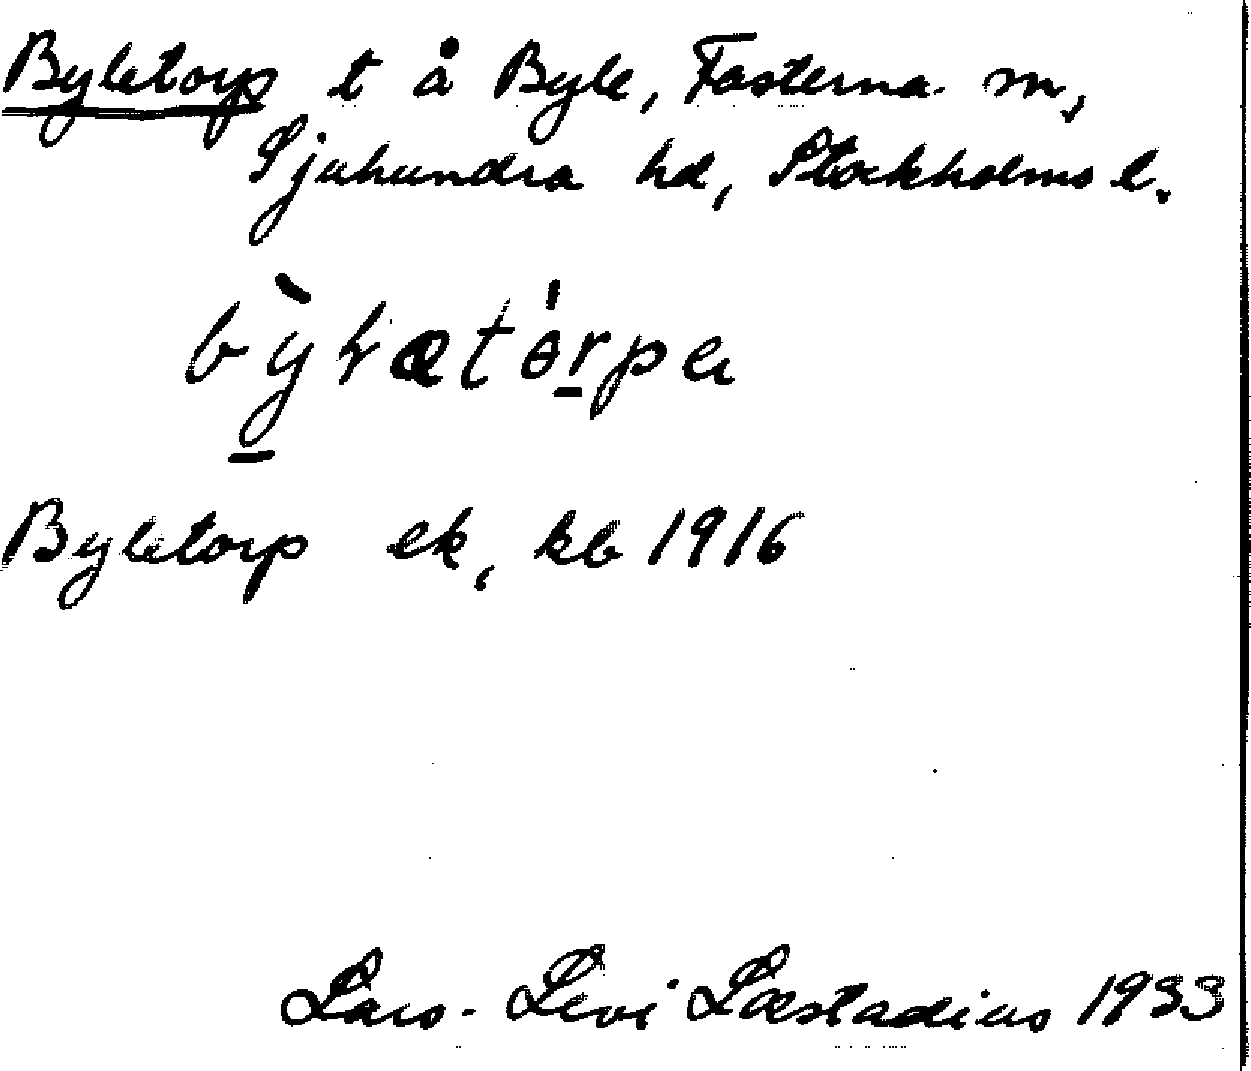 Byletorp t å Byle, Fasterna sn,
Sjuhundra hd, Stockholms l.
Byletorp ek, kb 1916
Lars-Levi Læstadius 1933